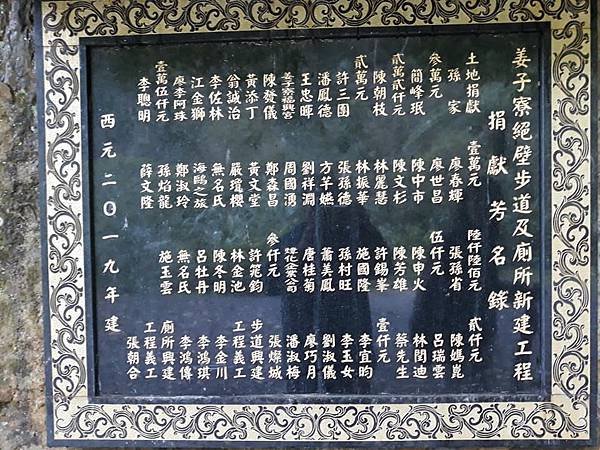 姜子寮絕壁步道及廁所新建工程
捐獻芳名錄
土地捐獻
孫家
參萬元
簡峰珉
貳萬貳仟元
陳朝枝
貳萬元
許三圍
潘鳳德
王忠暉
姜子寮福興宮
陳發儀
黃添丁
翁誠治
李佐林
江金獅
廖李阿珠
壹萬伍仟元
李聰明
壹萬元
廖春輝
廖世昌
陳中市
陳文杉
林麗慧
林振華
張孫德
方芊嬿
劉祥淵
周國湧
鄭森昌
黃文堂
嚴瓊櫻
無名氏
海鷗之旅
鄭淑玲
孫焰龍
薛文隆
陸仟陸佰元
張孫省
伍仟元
陳申火
陳芳雄
許錫峯
施國隆
孫村旺
蕭美鳳
唐桂菊
參仟元
許菀鈞
林金池
陳冬明
呂牡丹
無名氏
施玉雲
貳仟元
陳媽崑
呂瑞雲
林閔迪
蔡先生
壹仟元
李宜昀
李玉女
劉淑儀
廖巧月
潘淑梅
張燦城
步道興建
工程義工
李金川
李鴻琪
李鴻傳
廁所興建
工程義工
張朝合
西元二0一九年建